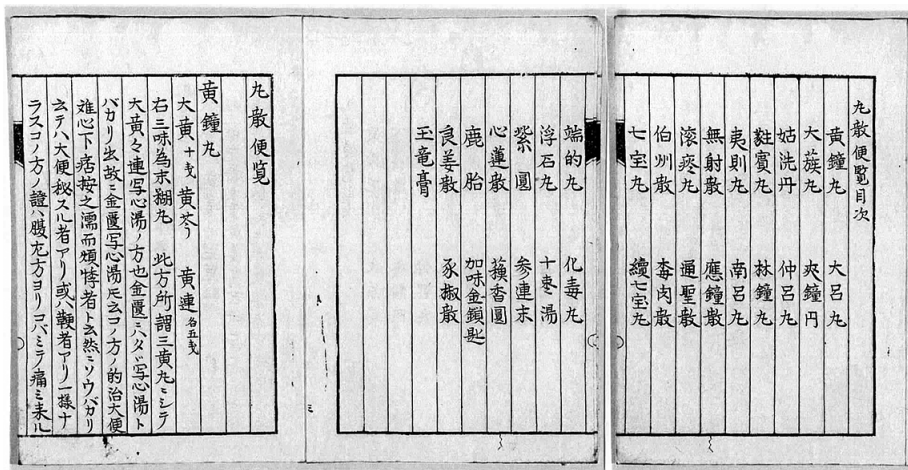 丸散便覧目次
黄鐘丸　大呂丸
大蔟丸　夾鐘円
姑洗丹　仲呂丸
蕤賓丸　林鐘丸
夷則丸　南呂丸
無射散　應鐘散
滚痰丸　通聖散
伯州散　毒肉散
七宝丸　續七宝丸
端的丸　化毒丸
浮石丸　十枣湯
紫圓　参連末
心蓮散　蘋香圓
鹿胎　加味金鎖匙
良姜散　豕椒散
玉竜膏
三
丸散便覧
黄鐘丸
大黄十戔　黄芩　黄連各五戔
右三味為末糊丸　此方所謂三黄丸ニシテ
大黄々連写心湯ノ方也金匱ニハタヾ写心湯ト
バカリ出故ニ金匱写心湯トモ云コノ方ノ的治大便
难心下痞按之濡而煩悸者ト云然ニソウバカリ
云テハ大便秘スル者アリ或ハ鞕者アリ一様ナ
ラスコノ方ノ證ハ腹左方ヨリコバミテ痛ミ来ル